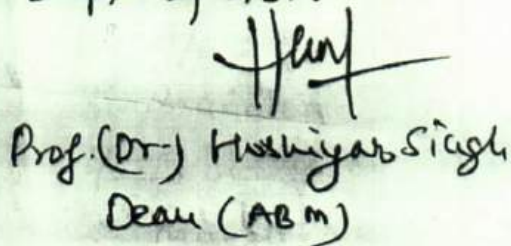 Prof. (Dr.) Hoshiyar Singh
Dean (ABM)